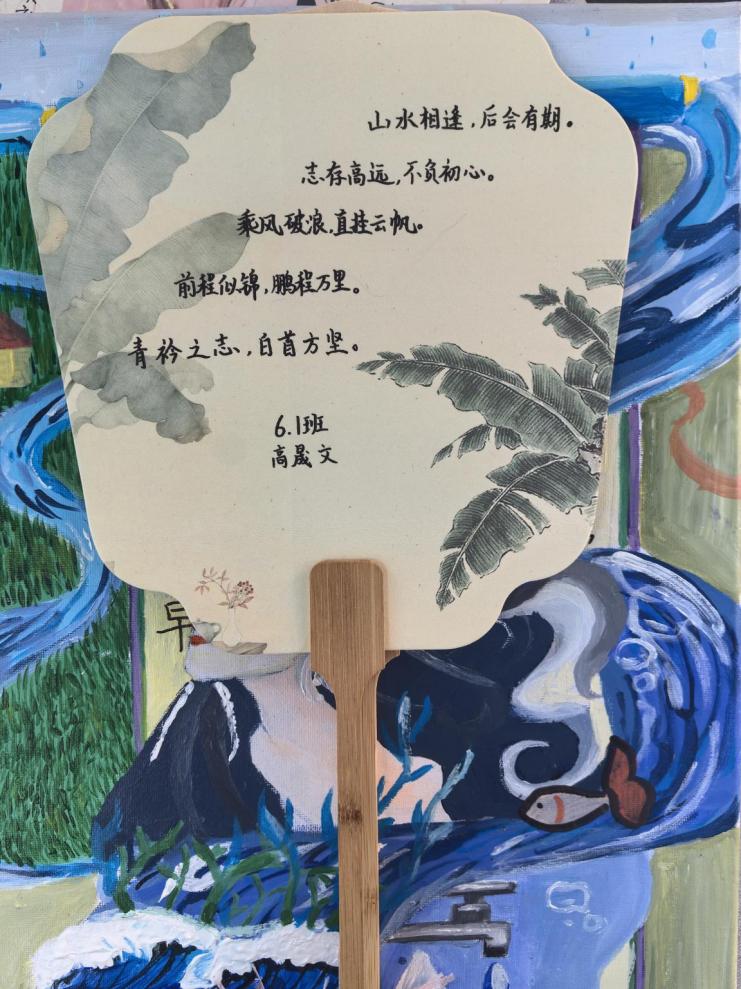 山水相逢，后会有期。
志存高远，不负初心。
乘风破浪，直挂云帆。
前程似锦，鹏程万里。
青衿之志，白首方坚。
6.1班
高晟文
早